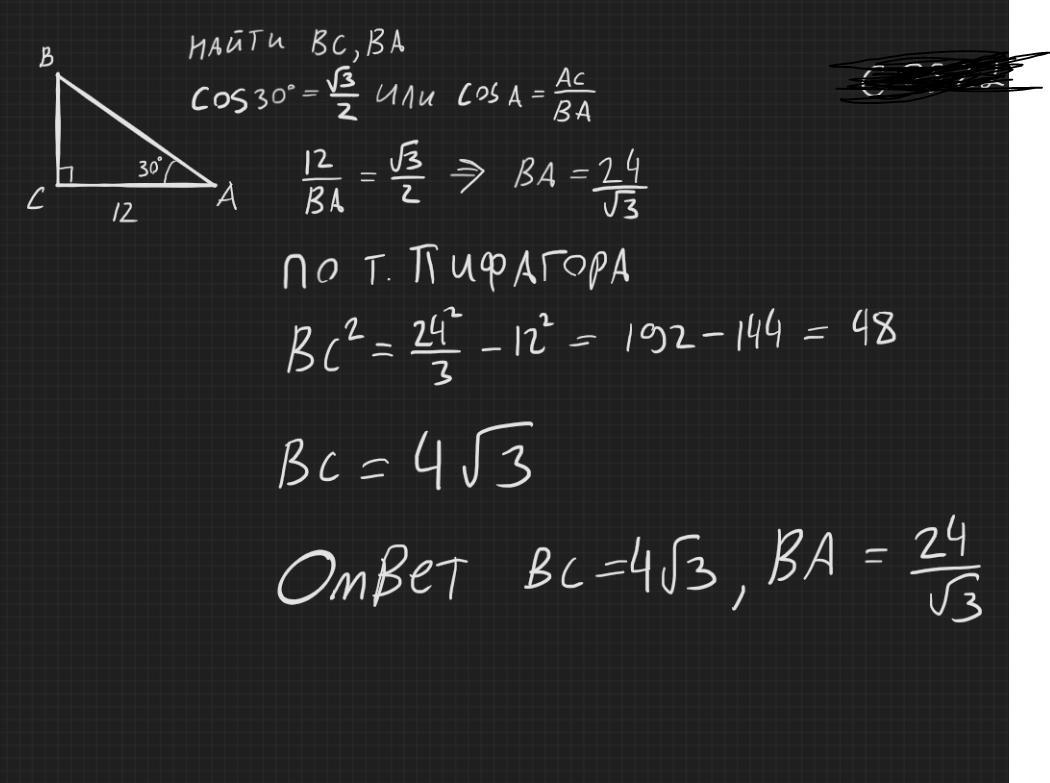 НАЙТИ BC, BA
B
cos30° = √3/2 или cos A = AC/BA
30°
C 12 A
12/BA = √3/2 ⇒ BA = 24/√3
ПО Т. ПИФАГОРА
BC² = 24²/3 - 12² = 192 - 144 = 48
BC = 4√3
Ответ BC = 4√3, BA = 24/√3